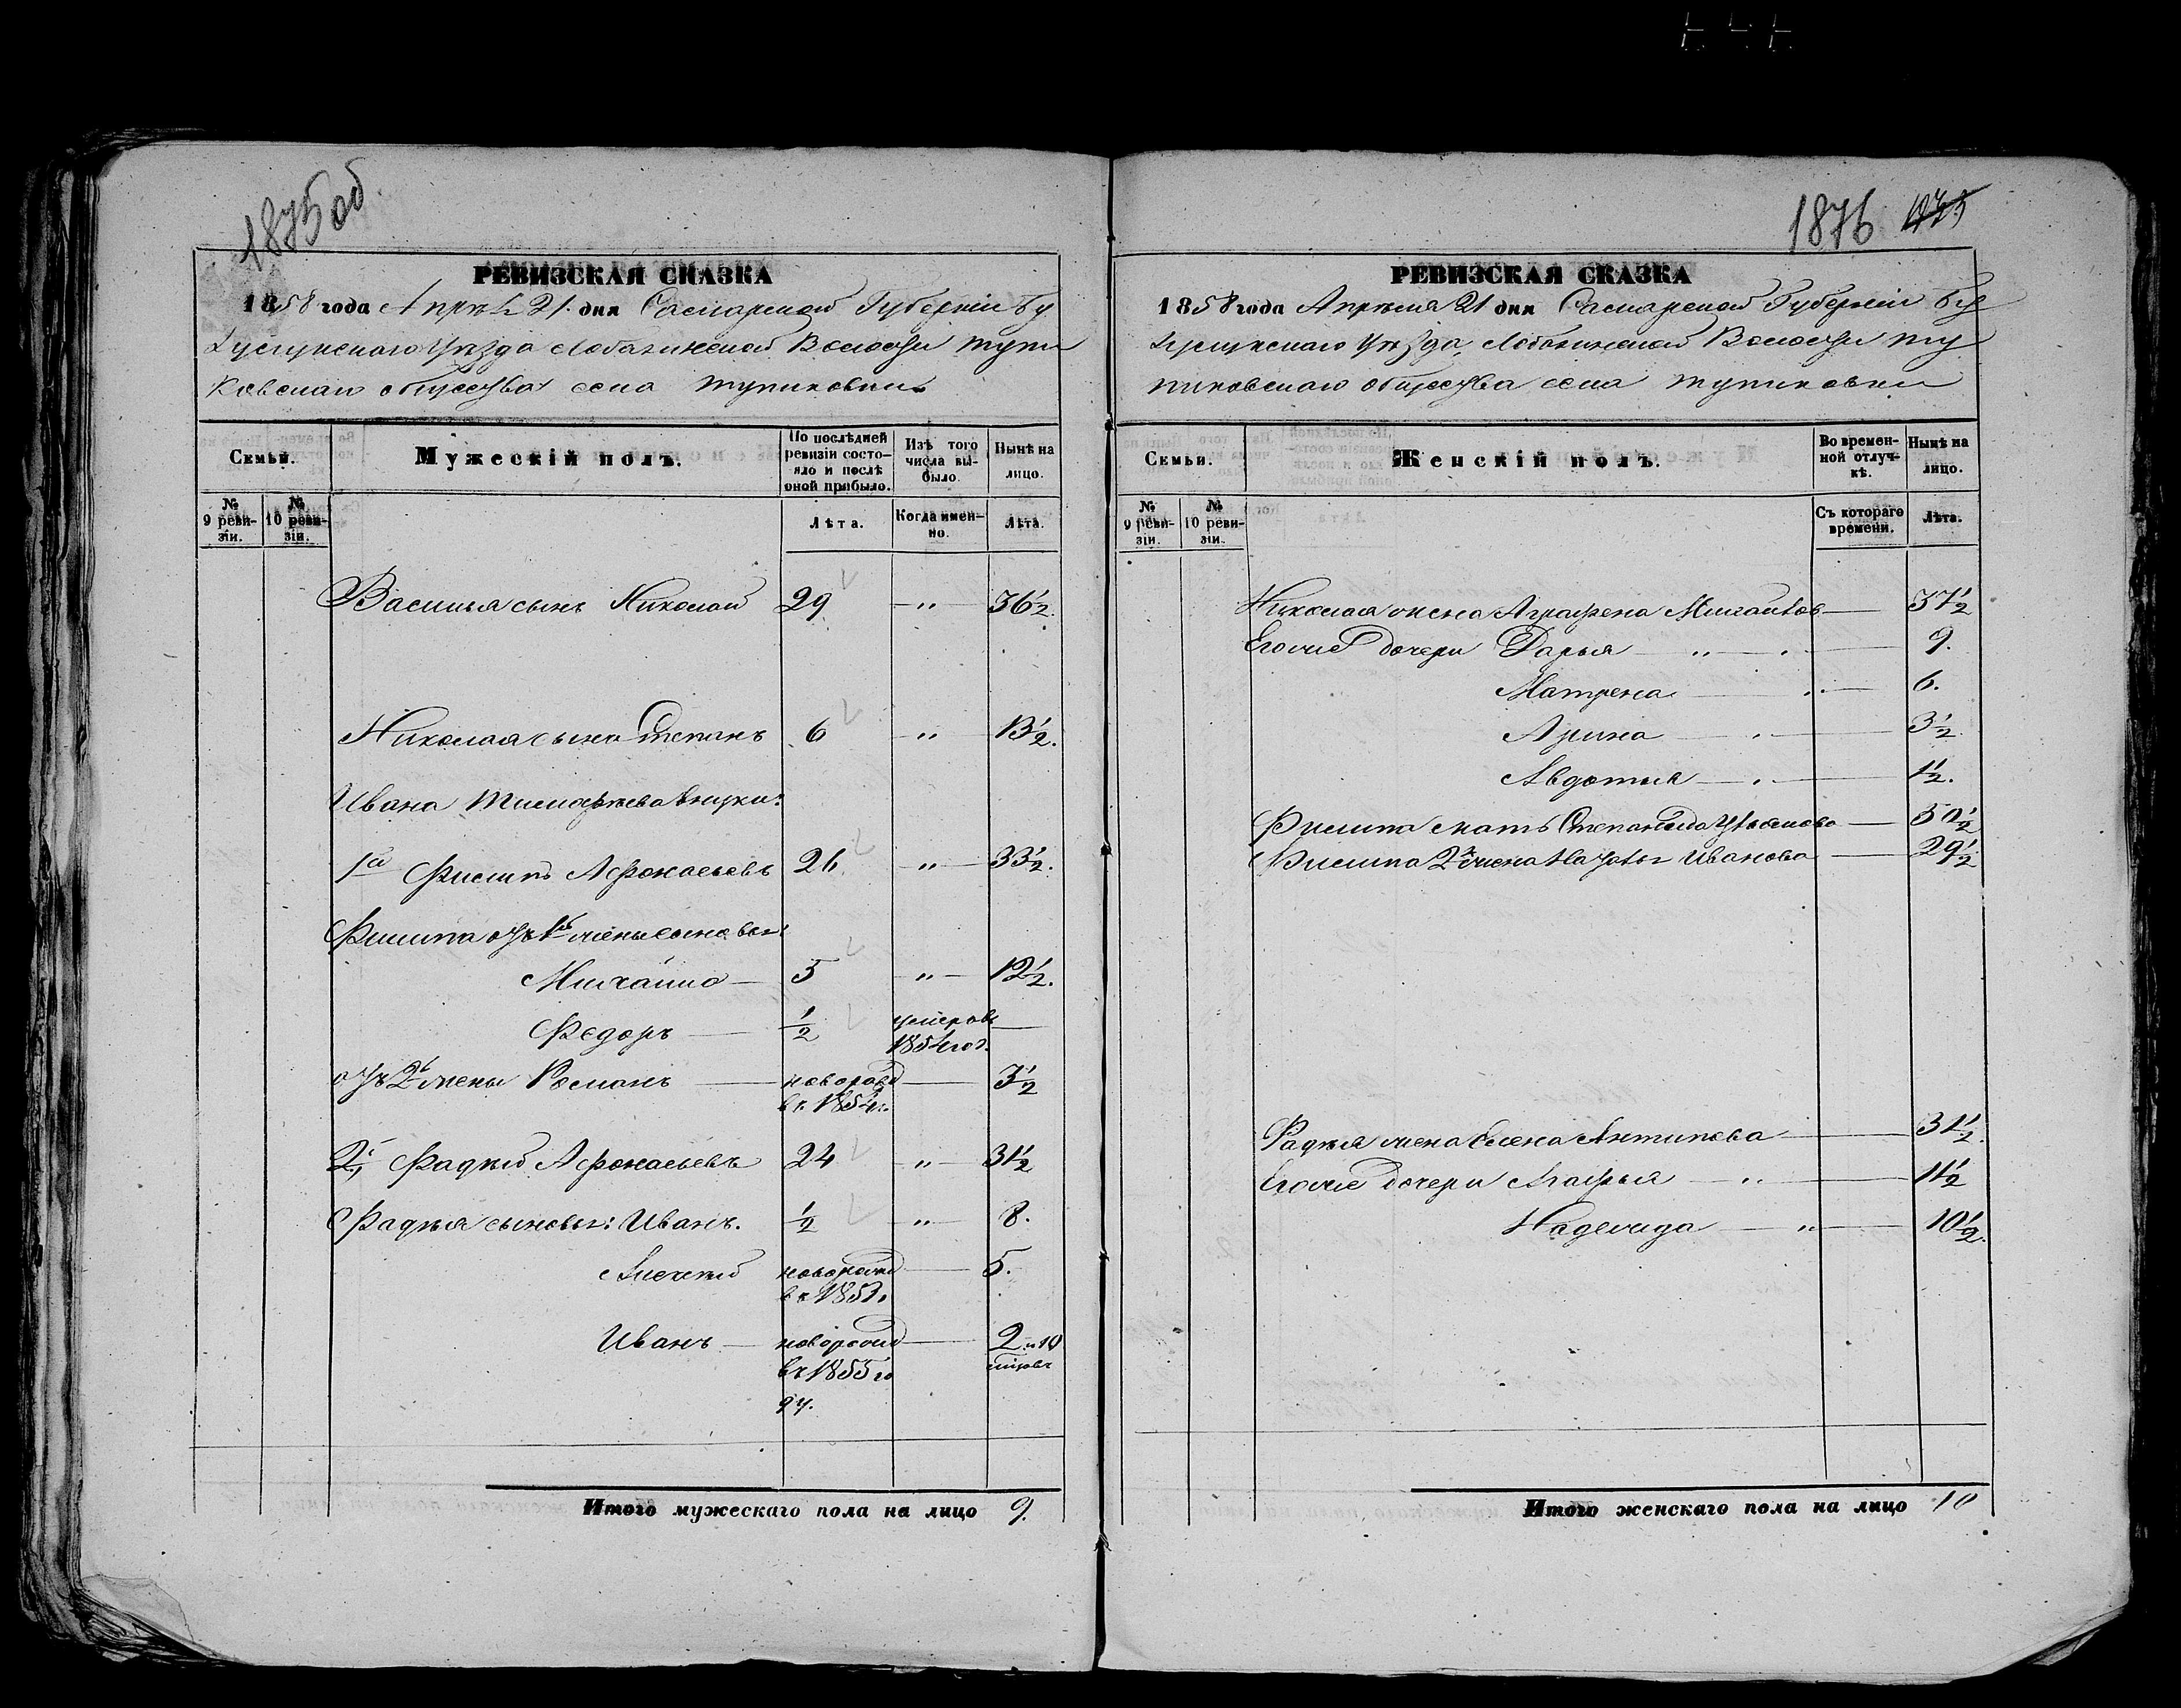 1875об
РЕВИЗСКАЯ СКАЗКА
1858 года Апрѣл 21 дня Самарской Губерніи Бу
гуруслуискаго уѣзда Лобазинской Волости тупи
ковскаго общества села тупиковки
Семьи.
Мужескій полъ.
По послѣдней ревизіи состояло и послѣ оной прибыло.
Изъ того числа выбыло.
Нынѣ на лицо.
№ 9 ревизіи.
№ 10 ревизіи.
Лѣта.
Когда именно.
Лѣта.
Василья сынъ Николай 29 — " — 36 1/2.
Николая сынъ Степанъ 6 — " — 13 1/2.
Ивана внуки:
1й Филипъ Афонасьевъ 26 " — 33 1/2.
Филипа отъ 1й жены сыновья:
Михайло — 5 " — 12 1/2.
Федоръ — 1/2 умеръ въ 1854 год. —
отъ 2й жены Романъ — новорожд въ 1854г. — 3 1/2
2й Фадѣй Афонасьевъ 24 " — 31 1/2
Фадѣя сыновья: Иванъ. 1/2 " — 8.
Алексѣй новорожд — 5.
въ 1853
Иванъ — новорожд — 2 и 10
въ 1855 го
ду.
Итого мужескаго пола на лицо 9.
1876
РЕВИЗСКАЯ СКАЗКА
1858 года Апрѣля 21 дня Самарской Губерніи Бу
уѣзда, Лобазинской Волости ту
пиковскаго общества села тупиковки
Семьи.
Женскій полъ.
Во временной отлучкѣ.
Нынѣ на лицо.
№ 9 ревизіи.
№ 10 ревизіи.
Съ котораго времени.
Лѣта.
Николая жена Аграфена Михайлов — 37 1/2
Егоже дочери Дарья — " — 9.
Матрена — " — 6.
Арина — " — 3 1/2
Авдотья — " — 1 1/2.
Филипа мать Степанида — 50 1/2
Филипа 2я жена Иванова — 29 1/2
Фадѣя жена Елена Антипова — 31 1/2.
Егоже дочери Агафья — " — 11 1/2
Надежда — " — 10 1/2.
Итого женскаго пола на лицо 10